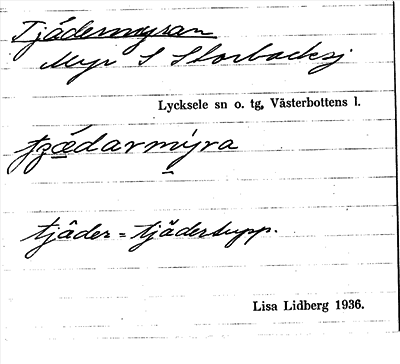 Tjädermyran
Myr S Storbacksj
Lycksele sn o. tg, Västerbottens l.
tjäder = tjädertupp.
Lisa Lidberg 1936.